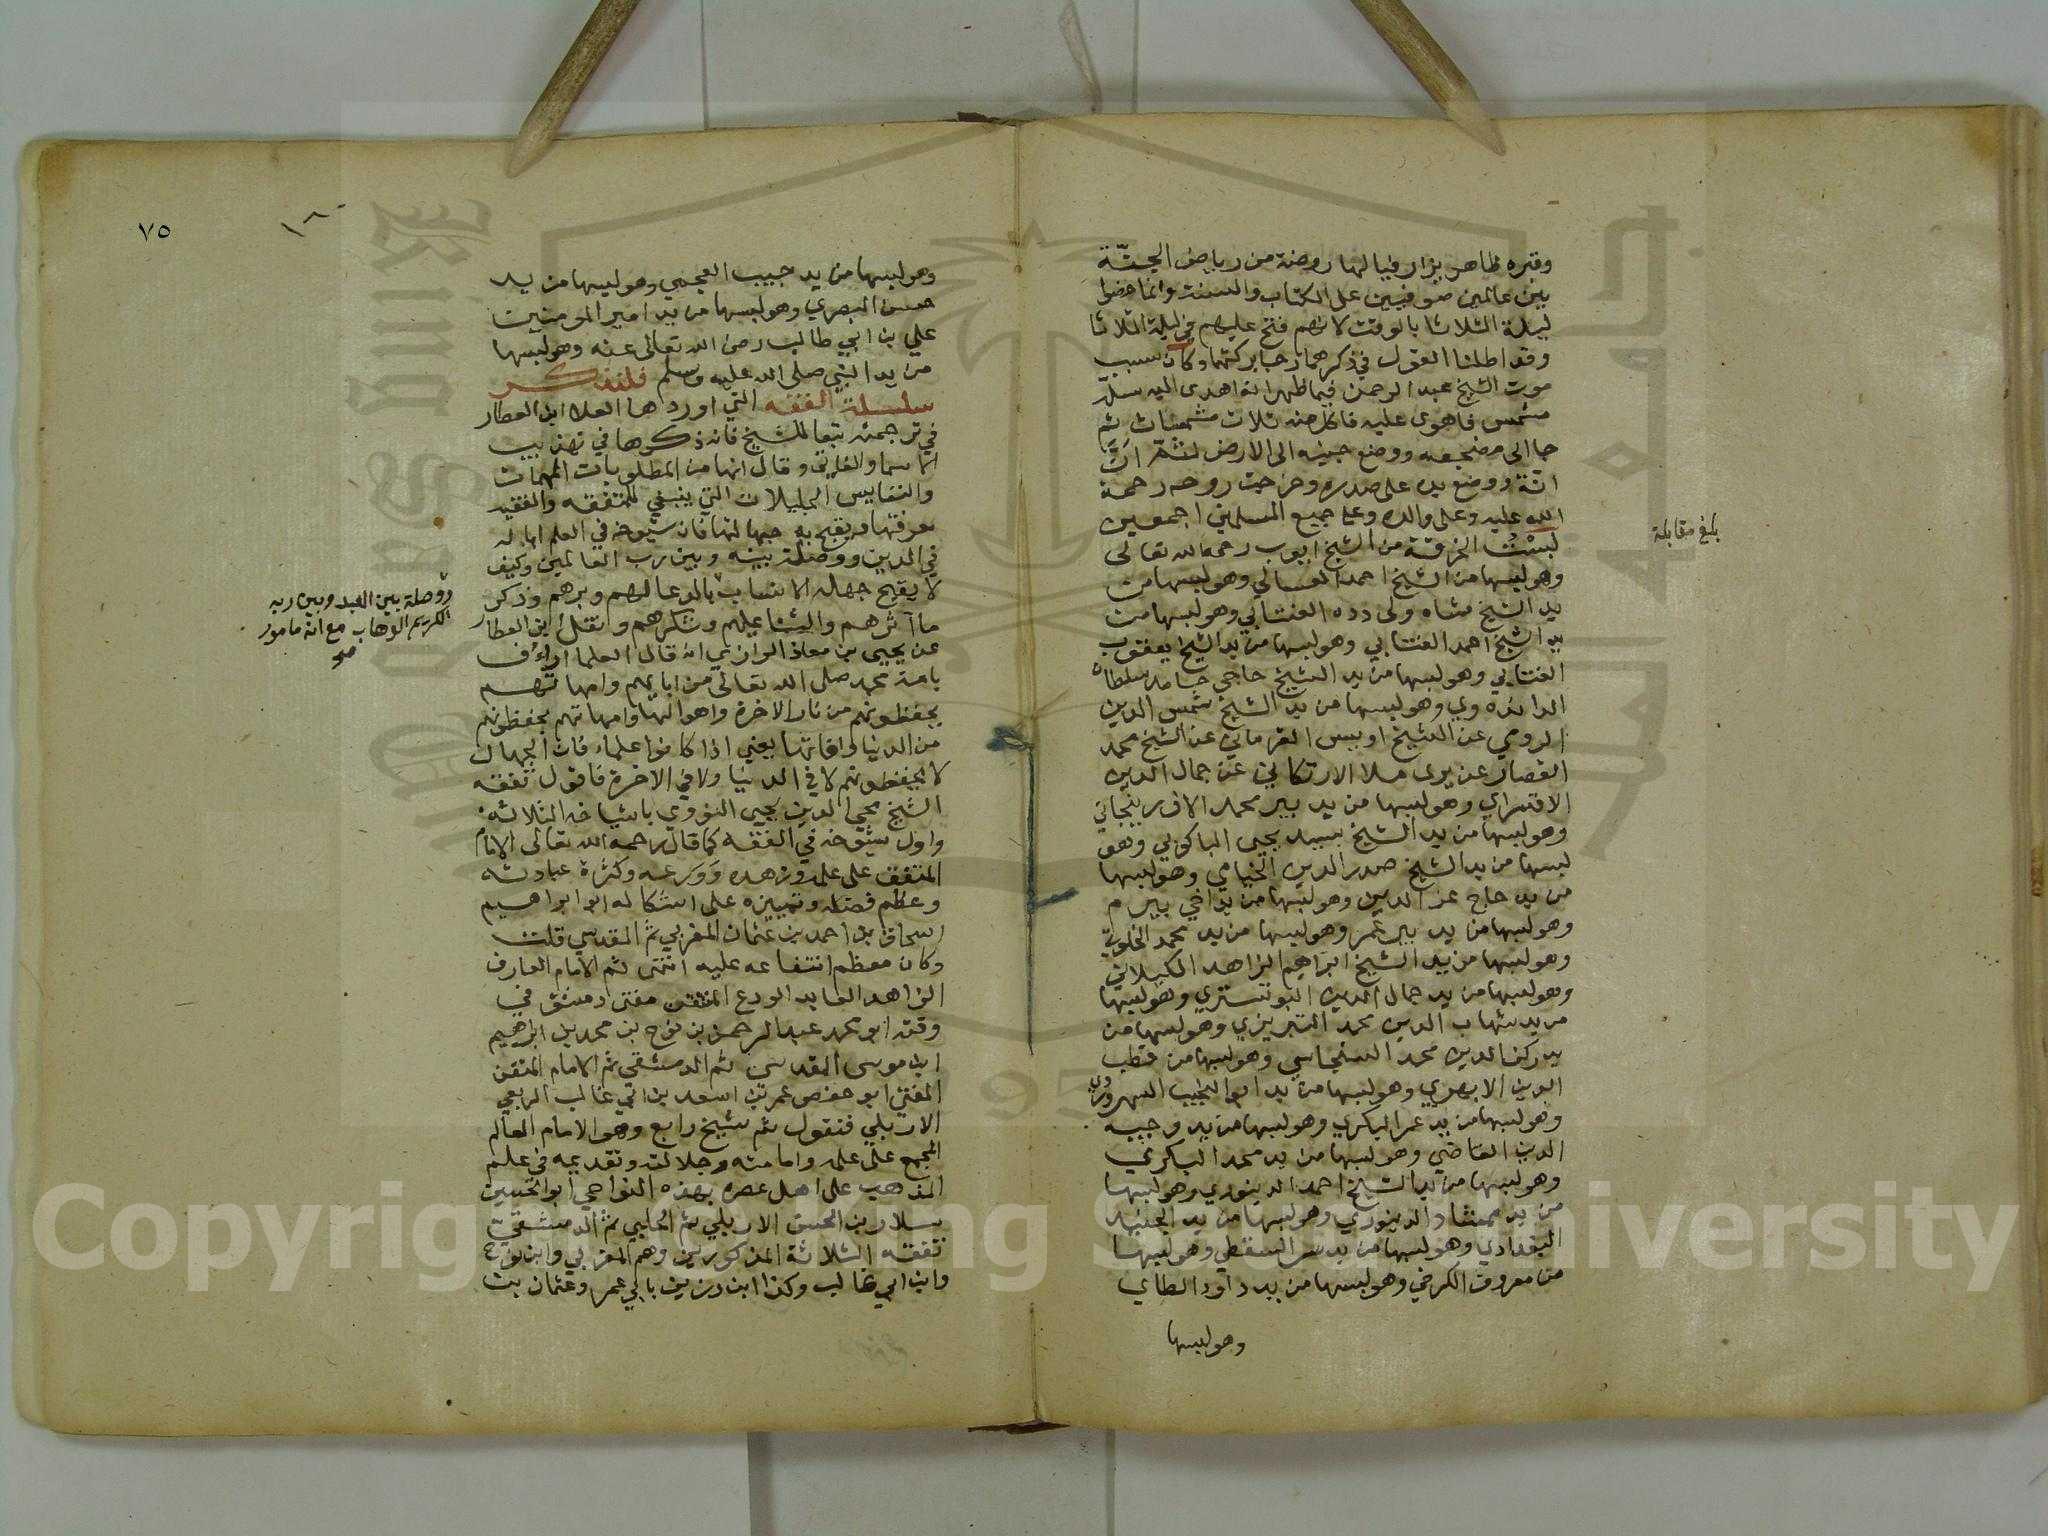 وقبره ظاهر يزار فيالها روضة من رياض الجنة
بين عالمين صوفيين على الكتاب والسنة وانما خصوا
ليلة الثلاثا بالوقت لانهم فتح عليهم في ليلة الثلاثا
وقد اطلنا القول في ذكرهما رجا بركتهما وكان سبب
موت الشيخ عبد الرحمن فيما ظهر انه اهدى اليه سلة
مشمس فاهوى عليه فاكل منه ثلاث مشمشات ثم
جا الى مضجعه ووضع جبينه الى الارض لنثم انَّ
انَّة ووضع يده على صدره وخرجت روحه رحمة
الله عليه وعلى والده وعلى جميع المسلمين اجمعين
لبسْتُ الخرقة من الشيخ ايوب رحمه الله تعالى
وهو لبسها من الشيخ احمد العسالي وهو لبسها من
يد الشيخ شاه ولى دده العنتابي وهو لبسها من
يد الشيخ احمد العنتابي وهو لبسها من يد الشيخ يعقوب
العنتابي وهو لبسها من يد الشيخ حاجي حامد سلطان
وهو لبسها من يد الشيخ شمس الدين
الرومي عن الشيخ اويس القرماني عن الشيخ محمد
القصار عن بري ملا الارتكاني عن جمال الدين
الاقسراي وهو لبسها من يد بير محمد الاذربيجاني
وهو لبسها من يد الشيخ سيد يحيى الباكوبي وهو
لبسها من يد الشيخ صدر الدين الخيامي وهو لبسها
من يد حاج عز الدين وهو لبسها من يد اخي بيرم
وهو لبسها من يد بير عمر وهو لبسها من يد محمد الخلوتي
وهو لبسها من يد الشيخ ابراهيم الزاهد الكيلاني
وهو لبسها من يد جمال الدين التستري وهو لبسها
من يد شهاب الدين محمد التبريزي وهو لبسها من
يد ركن الدين محمد السنجاسي وهو لبسها من قطب
الدين الابهري وهو لبسها من يد ابو النجيب السهروردي
وهو لبسها من يد عمر البكري وهو لبسها من يد وجيه
الدين القاضي وهو لبسها من يد محمد البكري
وهو لبسها من يد الشيخ احمد الدينوري وهو لبسها
من يد ممشاد الدينوري وهو لبسها من يد الجنيد
البغدادي وهو لبسها من يد سر السقطي وهو لبسها
من معروف الكرخي وهو لبسها من يد داود الطاي
وهو لبسها
بلغ مقابلة
٧٥
١٨٠
وهو لبسها من يد حبيب العجمي وهو لبسها من يد
حسن البصري وهو لبسها من يد امير المومنين
علي بن ابي طالب رضي الله تعالى عنه وهو لبسها
من يد النبي صلى الله عليه وسلم فلنذكر
سلسلة الفقه التي اوردها العلا ابن العطار
في ترجمته تبعا للشيخ فانه ذكرها في تهذيب
الاسما واللغات وقال انها من المطلوبات المهمات
والنفايس الجليلات التي ينبغي للمتفقه والفقيه
معرفتها ويقبح به جهالتها فان شيوخه في العلم ابا له
في الدين ووصلة بينه وبين رب العالمين وكيف
لا يقبح جهله الانساب بالدعا لهم وبرهم وذكر
مآثرهم والثنا عليهم وشكرهم ونقل ابن العطار
عن يحيى بن معاذ الرازي انه قال العلما ارأف
بامة محمد صلى الله تعالى من ابايهم وامهاتهم
يحفظونهم من نار الاخرة واهوالها وامهاتهم يحفظونهم
من الدنيا وافاتها يعني اذا كانوا علماء فان الجهال
لا يحفظونهم لا في الدنيا ولا في الاخرة فاقول تفقه
الشيخ محيي الدين يحيى النووي باشياخه الثلاثة
واول شيوخه في الفقه كما قال رحمه الله تعالى الامام
المتفق على علمه وزهده وورعه وكثرة عبادته
وعظم فضله وتمييزه على اشكاله ابو ابراهيم
اسحاق بن احمد بن عثمان المغربي ثم المقدسي قلت
وكان معظم انتفاعه عليه انتهى ثم الامام العارف
الزاهد العابد الورع المتقن مفتى دمشق في
وقته ابو محمد عبد الرحمن بن نوح بن محمد بن ابراهيم
ابن موسى المقدسي ثم الدمشقي ثم الامام المتقن
المفتي ابو حفص عمر بن اسعد بن ابي غالب الربعي
الاربلي فنقول ثم شيخ رابع وهو الامام العالم
المجمع على علمه وامامته وجلالته وتقدمه في علم
المذهب على اهل عصره بهذه النواحي ابو الحسن
سلار بن الحسن الاربلي ثم الحلبي ثم الدمشقي
تفقه الثلاثة المذكورين وهم المغربي وابن نوح
وابن ابي غالب وكذا ابن رزين بابي عمر وعثمان بن
ووصلة بين العبد وبين ربه
الكريم الوهاب مع انه مامور
صح
Copyright © King Saud University